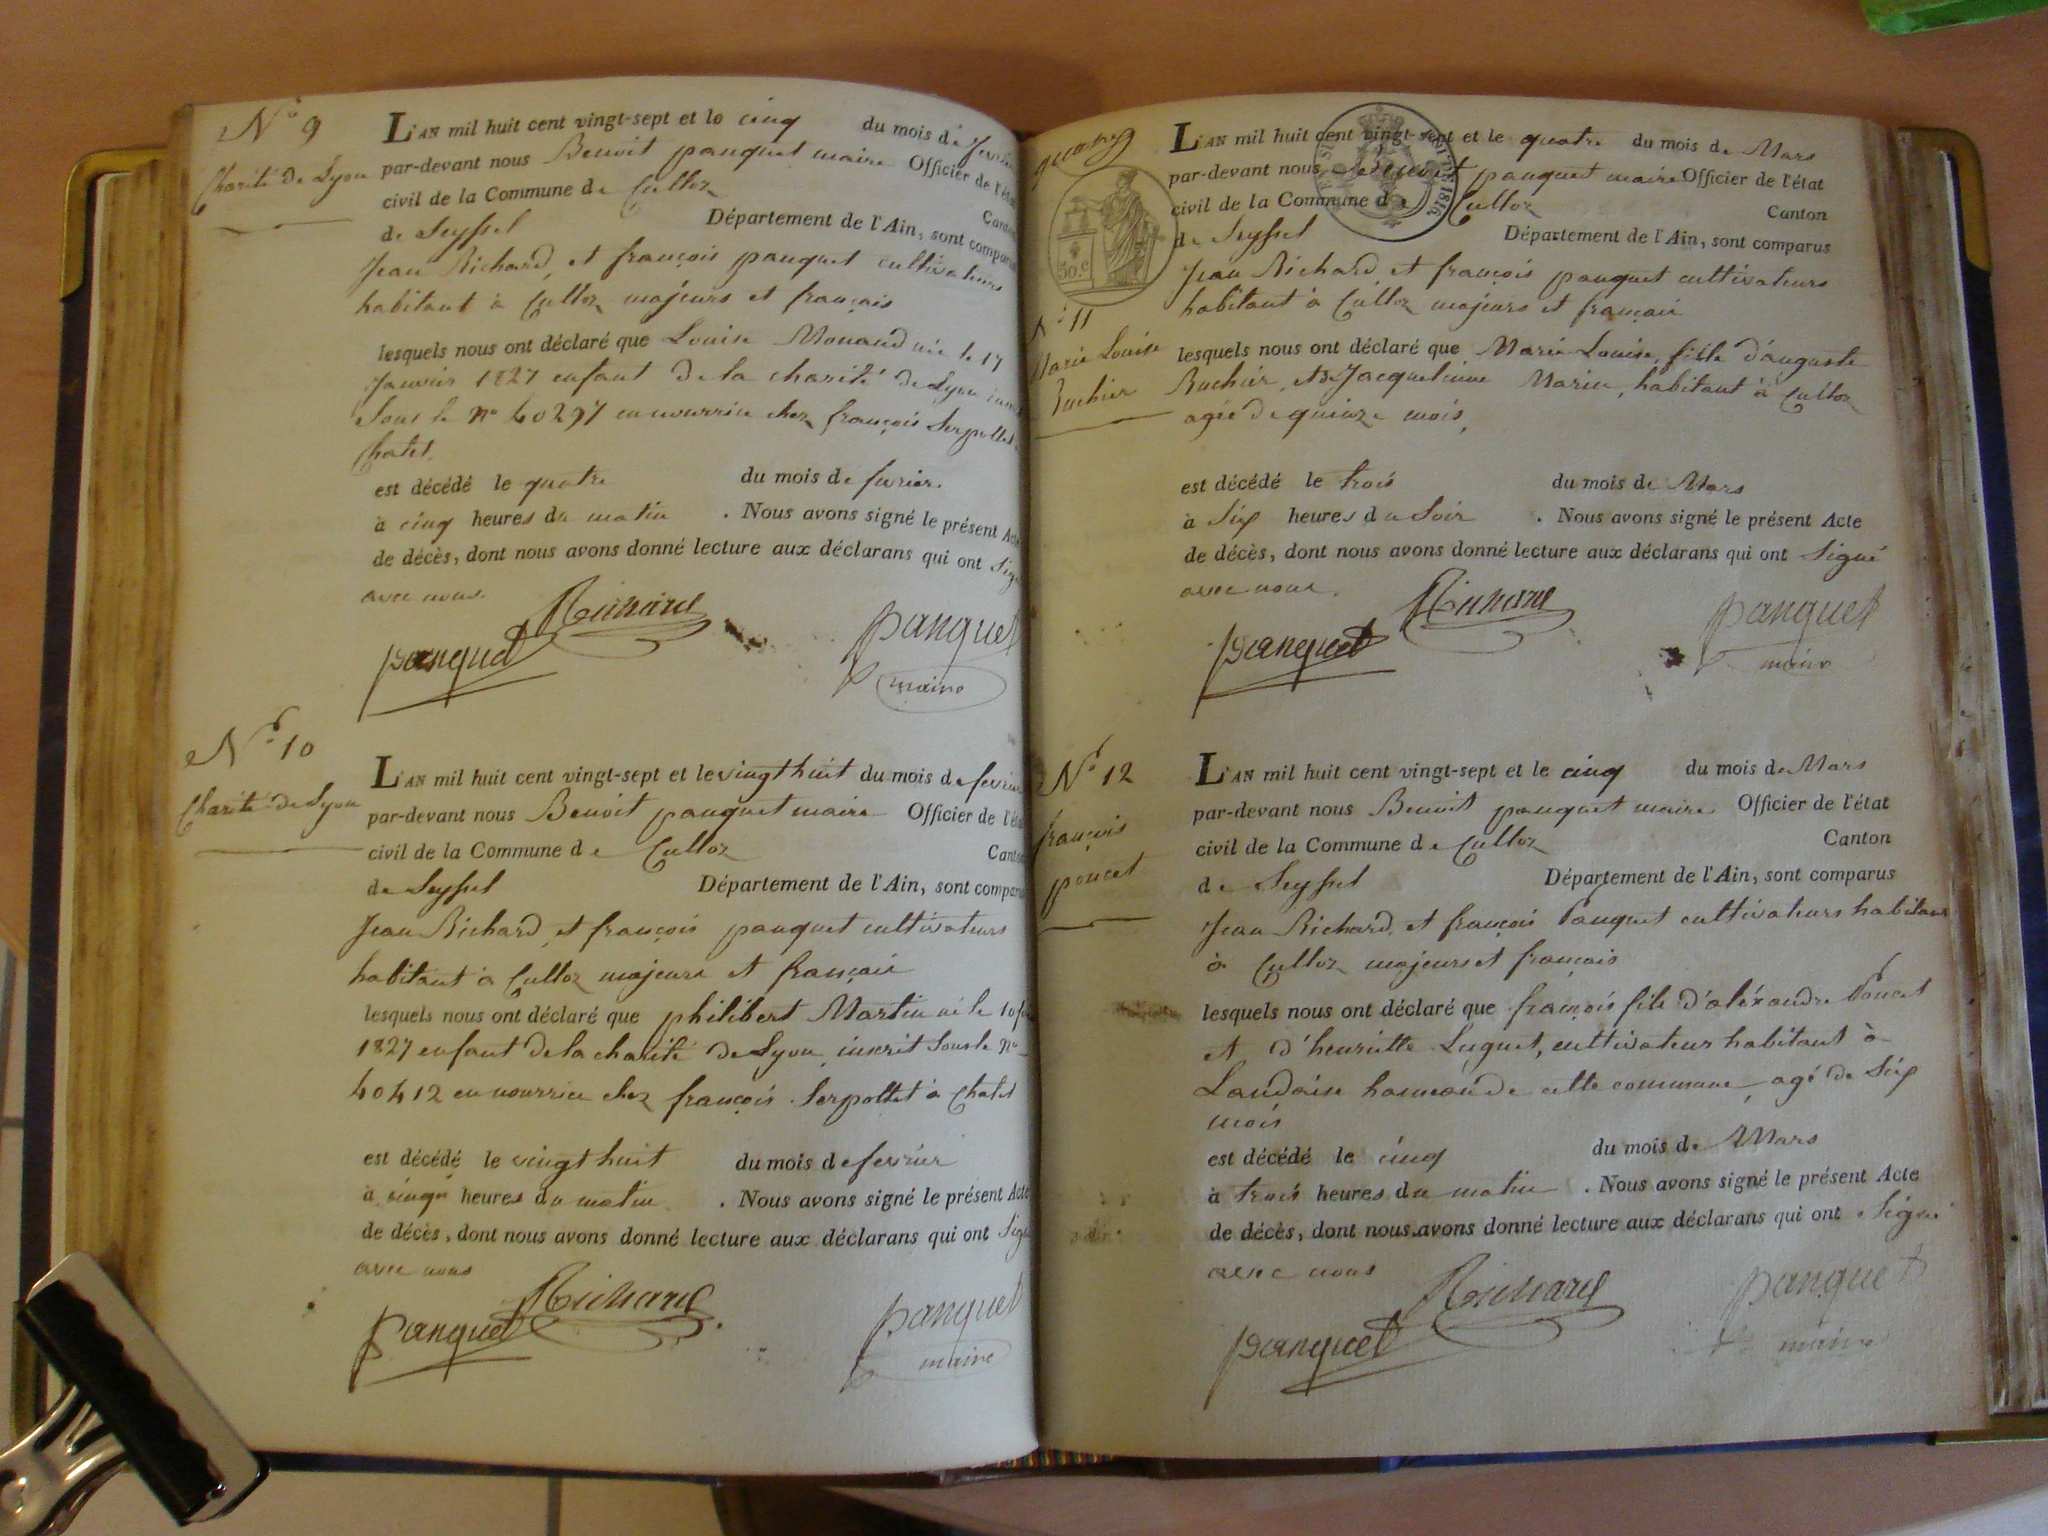 N° 9
Charité de Lyon
L'AN mil huit cent vingt-sept et le cinq du mois de
par-devant nous Benoit pauquet maire Officier de l'état
civil de la Commune de Culloz Canton
de Seyssel Département de l'Ain, sont comparus
Jean Richard, et françois pauquet cultivateurs
habitant à Culloz majeurs et français
lesquels nous ont déclaré que Louise Monaud née le 17
Janvier 1827 enfant de la charité de Lyon
Sous le n° 40297 en nourrice chez françois Serpollet
Chatel.
est décédé le quatre du mois de fevrier.
à cinq heures du matin . Nous avons signé le présent Acte
de décès, dont nous avons donné lecture aux déclarans qui ont
avec nous.
Richard
pauquet
pauquet
maire
N° 10
Charité de Lyon
L'AN mil huit cent vingt-sept et le vingt huit du mois de
par-devant nous Benoit pauquet maire Officier de l'état
civil de la Commune de Culloz Canton
de Seyssel Département de l'Ain, sont comparus
Jean Richard, et françois pauquet cultivateurs
habitant à Culloz majeurs et français
lesquels nous ont déclaré que philibert Martin né le 10
1827 enfant de la charité de Lyon, inscrit Sous le n°
40412 en nourrice chez françois Serpollet à Chatel
est décédé le vingt huit du mois de fevrier
à cinq heures du matin . Nous avons signé le présent Acte
de décès, dont nous avons donné lecture aux déclarans qui ont
avec nous
Richard
pauquet
pauquet
maire
quatre
50.c
N° 11
Marie Louise
Ruchier
L'AN mil huit cent vingt-sept et le quatre du mois de Mars
par-devant nous pauquet maire Officier de l'état
civil de la Commune de Culloz Canton
de Seyssel Département de l'Ain, sont comparus
Jean Richard, et françois pauquet cultivateurs
habitant à Culloz majeurs et français
lesquels nous ont déclaré que Marie Louise, fille d'auguste
Ruchier, et de Jacquelinne Marin, habitant à Culloz
agée de quinze mois,
est décédé le trois du mois de Mars
à Six heures du Soir . Nous avons signé le présent Acte
de décès, dont nous avons donné lecture aux déclarans qui ont Signé
avec nous.
Richard
pauquet
pauquet
maire
N° 12
françois
poncet
L'AN mil huit cent vingt-sept et le cinq du mois de Mars
par-devant nous Benoit pauquet maire Officier de l'état
civil de la Commune de Culloz Canton
de Seyssel Département de l'Ain, sont comparus
Jean Richard, et françois Pauquet cultivateurs habitant
à Culloz majeurs et français
lesquels nous ont déclaré que françois fils d'aléxandre Poncet
et d'henriette Luguet, cultivateur habitant à
Landaise hameau de cette commune, agé de Six
mois
est décédé le cinq du mois de Mars
à trois heures du matin . Nous avons signé le présent Acte
de décès, dont nous avons donné lecture aux déclarans qui ont Signé
avec nous
Richard
pauquet
pauquet
maire